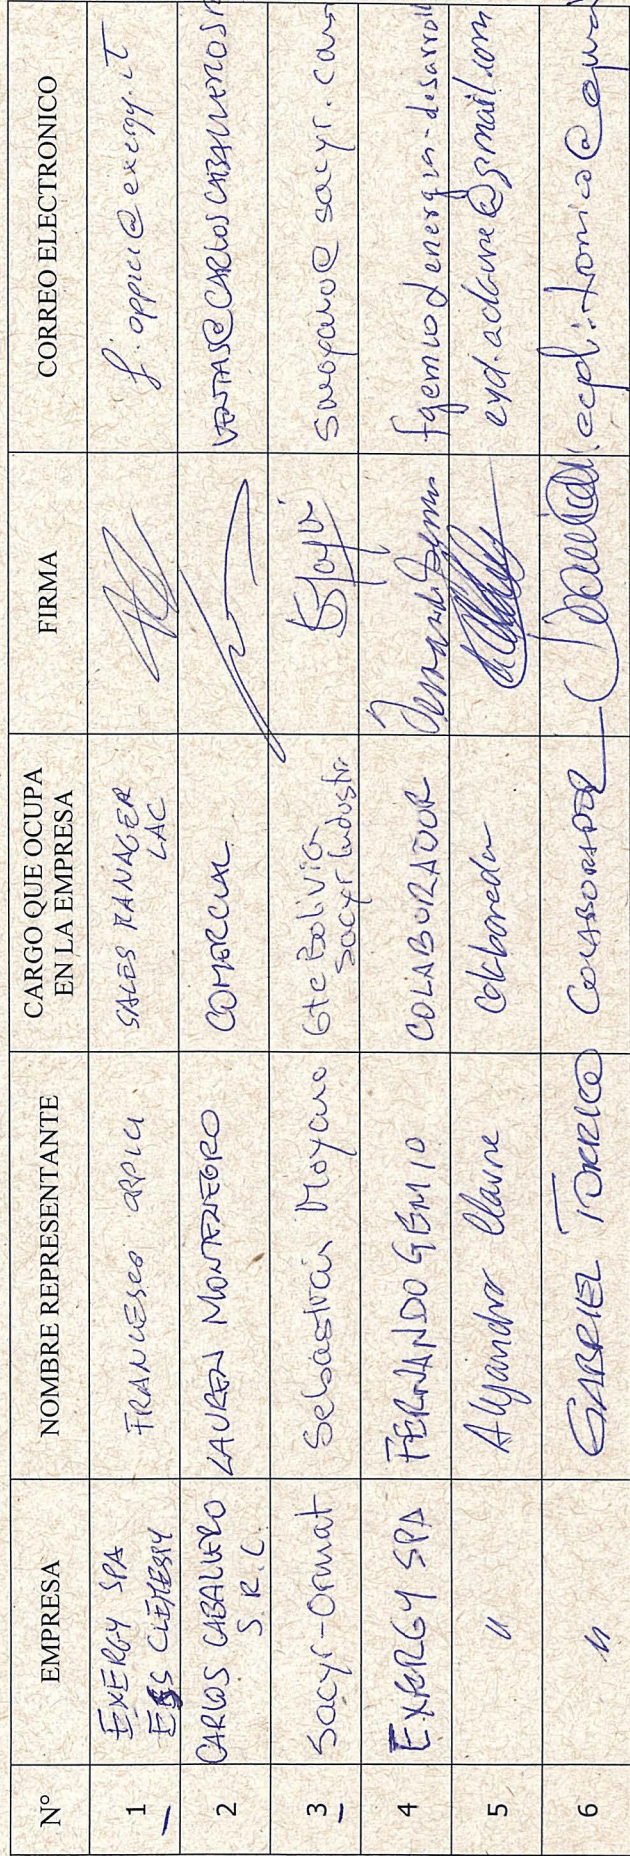 N° EMPRESA NOMBRE REPRESENTANTE CARGO QUE OCUPA EN LA EMPRESA FIRMA CORREO ELECTRONICO
1 EXERGY SPA FRANCESCO OPPICI SALES MANAGER LAC f.oppici@exergy.it
2 CARLOS CABALLERO S.R.L. LAUREN MONTENEGRO COMERCIAL VENTAS@CARLOSCABALLEROSR
3 Sacyr-Ormat Sebastián Moyano Gte Bolivia Sacyr Industr. smoyano@sacyr.com
4 EXERGY SPA FERNANDO GEMIO COLABORADOR fgemio@energia-desarroll
5 " Alejandro Claure Colaborador eyd.aclaure@gmail.com
6 " GABRIEL TORRICO COLABORADOR